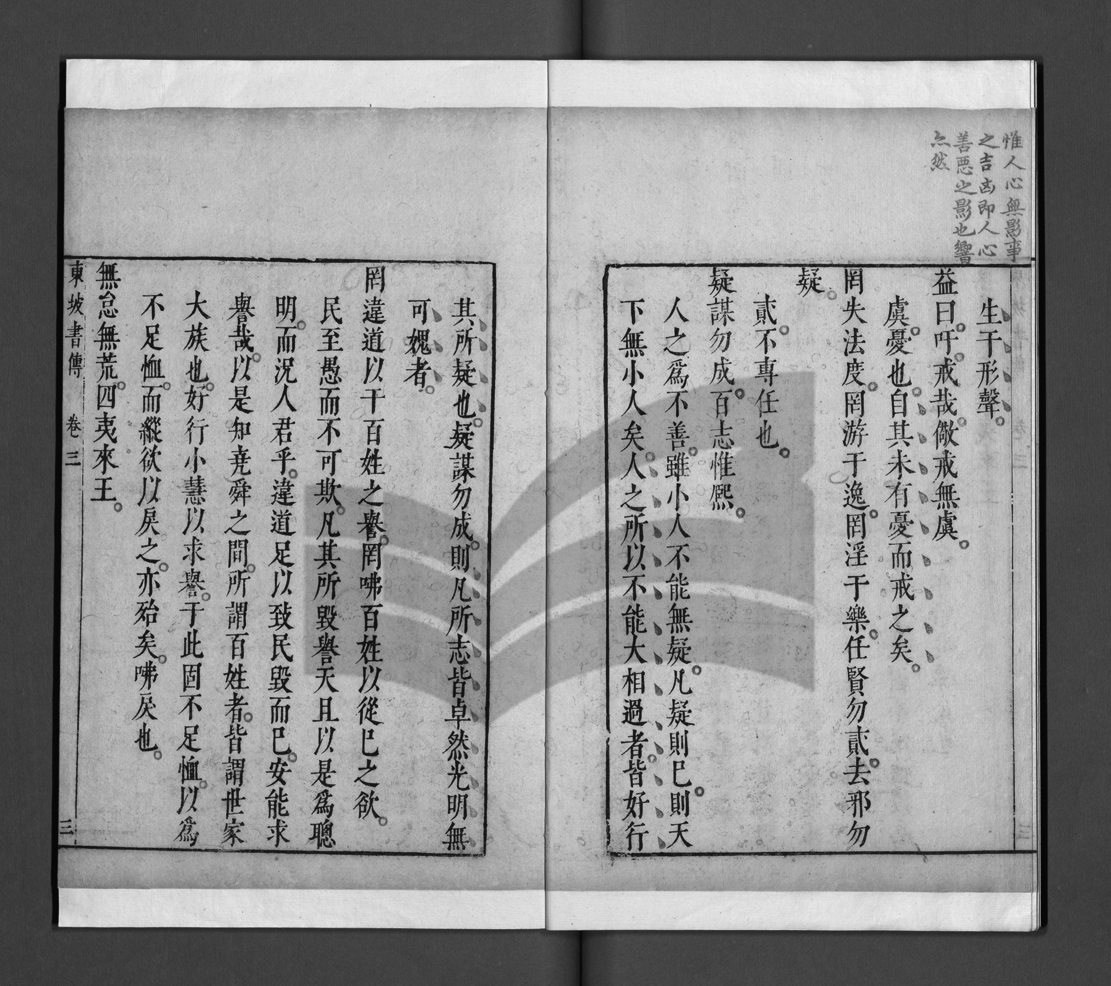 惟人心無影事
之吉凶即人心
善惡之影也響
亦然
生于形聲。
益曰。吁。戒哉。儆戒無虞。
虞。憂也。自其未有憂而戒之矣。
罔失法度。罔游于逸。罔淫于樂。任賢勿貳。去邪勿
疑。
貳。不專任也。
疑謀勿成。百志惟熈。
人之爲不善。雖小人不能無疑。凡疑則已。則天
下無小人矣。人之所以不能大相過者。皆好行
其所疑也。疑謀勿成。則凡所志皆卓然光明無
可媿者。
罔違道以干百姓之譽。罔咈百姓以從已之欲。
民至愚而不可欺。凡其所毀譽天且以是爲聰
明。而況人君乎。違道足以致民毀而已。安能求
譽哉。以是知堯舜之間。所謂百姓者。皆謂世家
大族也。好行小慧以求譽。于此固不足恤。以爲
不足恤。而縱欲以戾之。亦殆矣。咈戾也。
無怠無荒。四夷來王。
東坡書傳 卷三 三